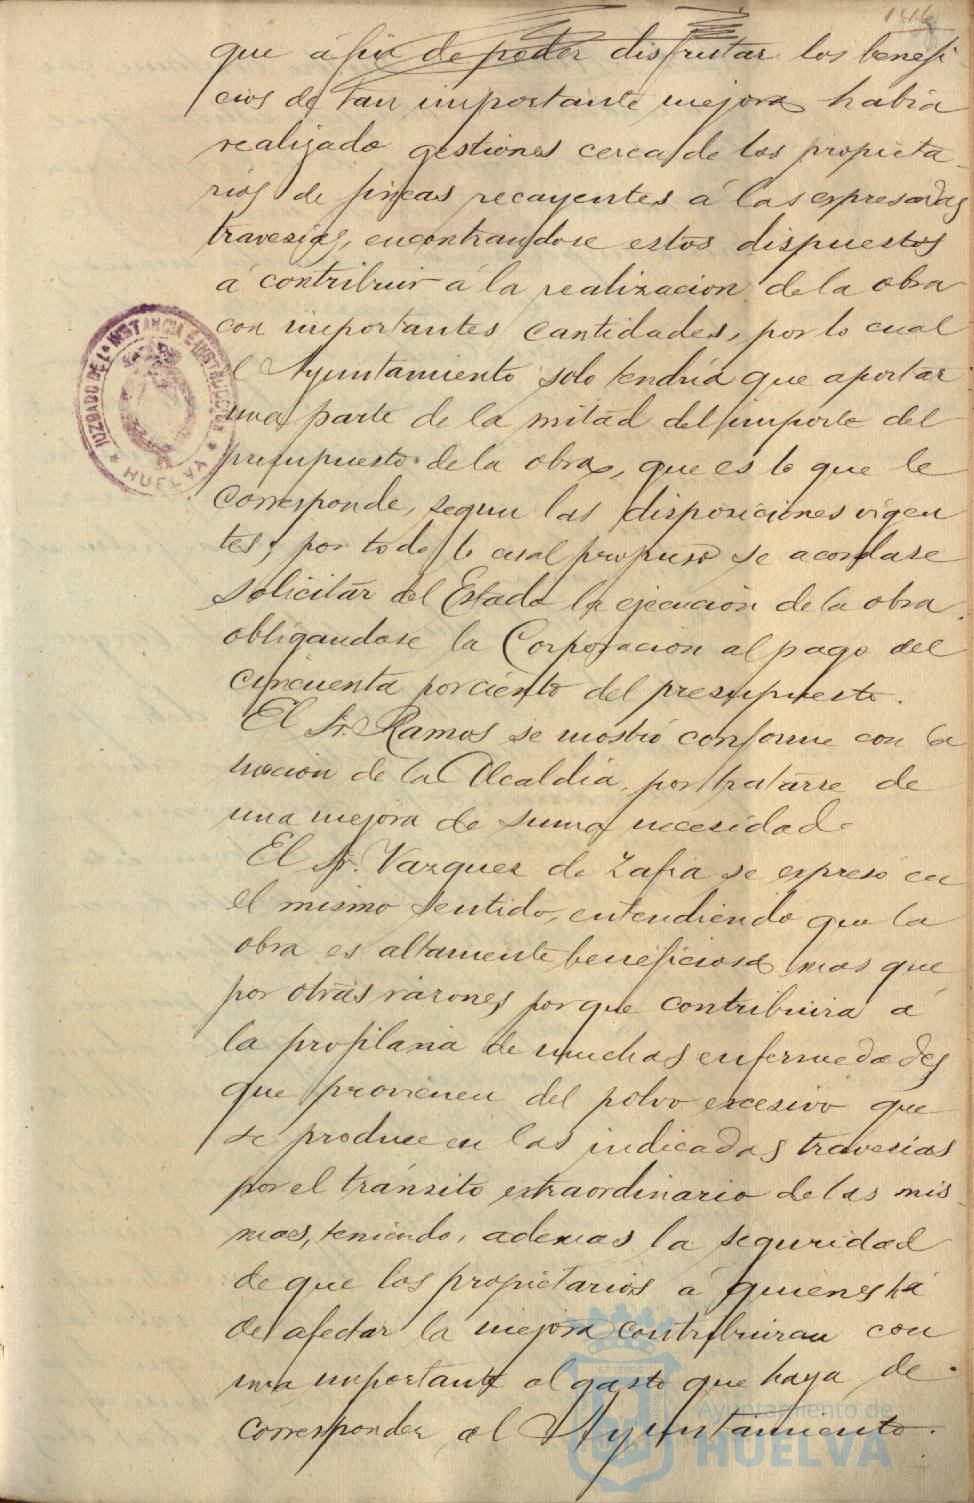 que á fin de poder disfrutar los benefi-
cios de tan importante mejora habia
realizado gestiones cerca de los propieta-
rios de fincas recayentes á las expresadas
travesias, encontrandose estos dispuestos
á contribuir á la realizacion de la obra
con importantes cantidades, por lo cual
el Ayuntamiento solo tendria que aportar
una parte de la mitad del importe del
presupuesto de la obra, que es lo que le
corresponde, segun las disposiciones vigen
tes; por todo lo cual propuso se acordase
solicitar del Estado la ejecucion de la obra
obligandose la Corporacion al pago del
cincuenta por ciento del presupuesto.
El Sr. Ramos se mostró conforme con la
mocion de la Alcaldia, por tratarse de
una mejora de suma necesidad.
El Sr. Vazquez de Zafra se expresó en
el mismo sentido, entendiendo que la
obra es altamente beneficiosa mas que
por otras razones porque contribuira á
la profilaxia de muchas enfermedades
que provienen del polvo excesivo que
se produce en las indicadas travesias
por el tránsito extraordinario de las mis-
mas, teniendo, ademas la seguridad
de que los propietarios á quienes há
de afectar la mejora contribuiran con
una importante al gasto que haya de
corresponder al Ayuntamiento.
JUZGADO DE 1ª INSTANCIA E INSTRUCCION
* HUELVA *
Ayuntamiento de
HUELVA